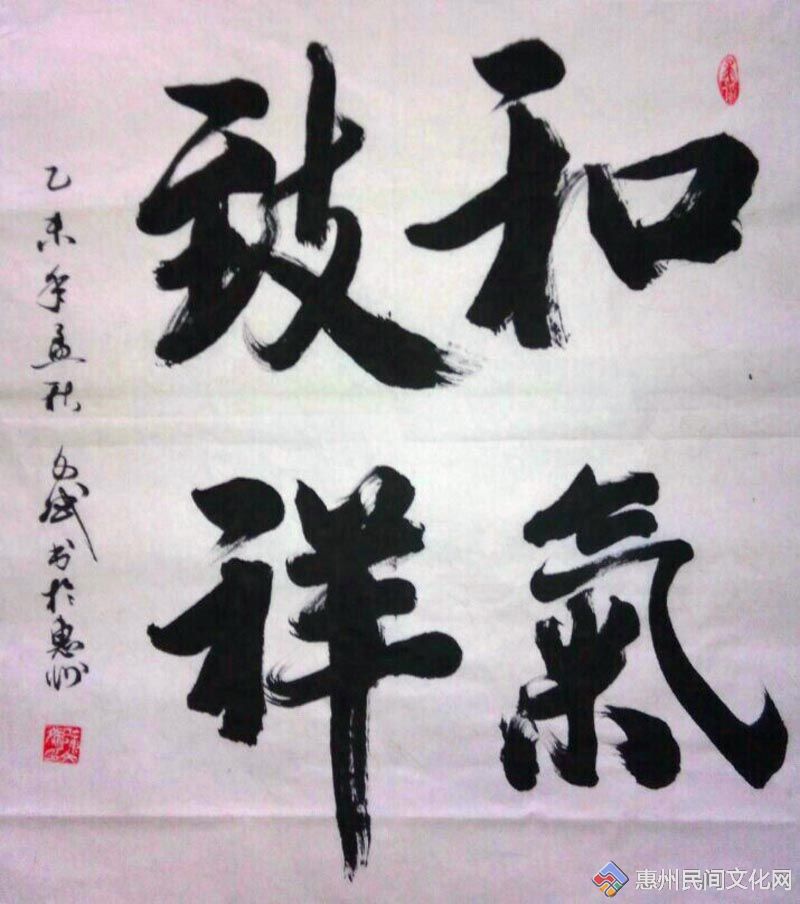 和氣
致祥
乙未年孟秋 文斌书於惠州
惠州民间文化网